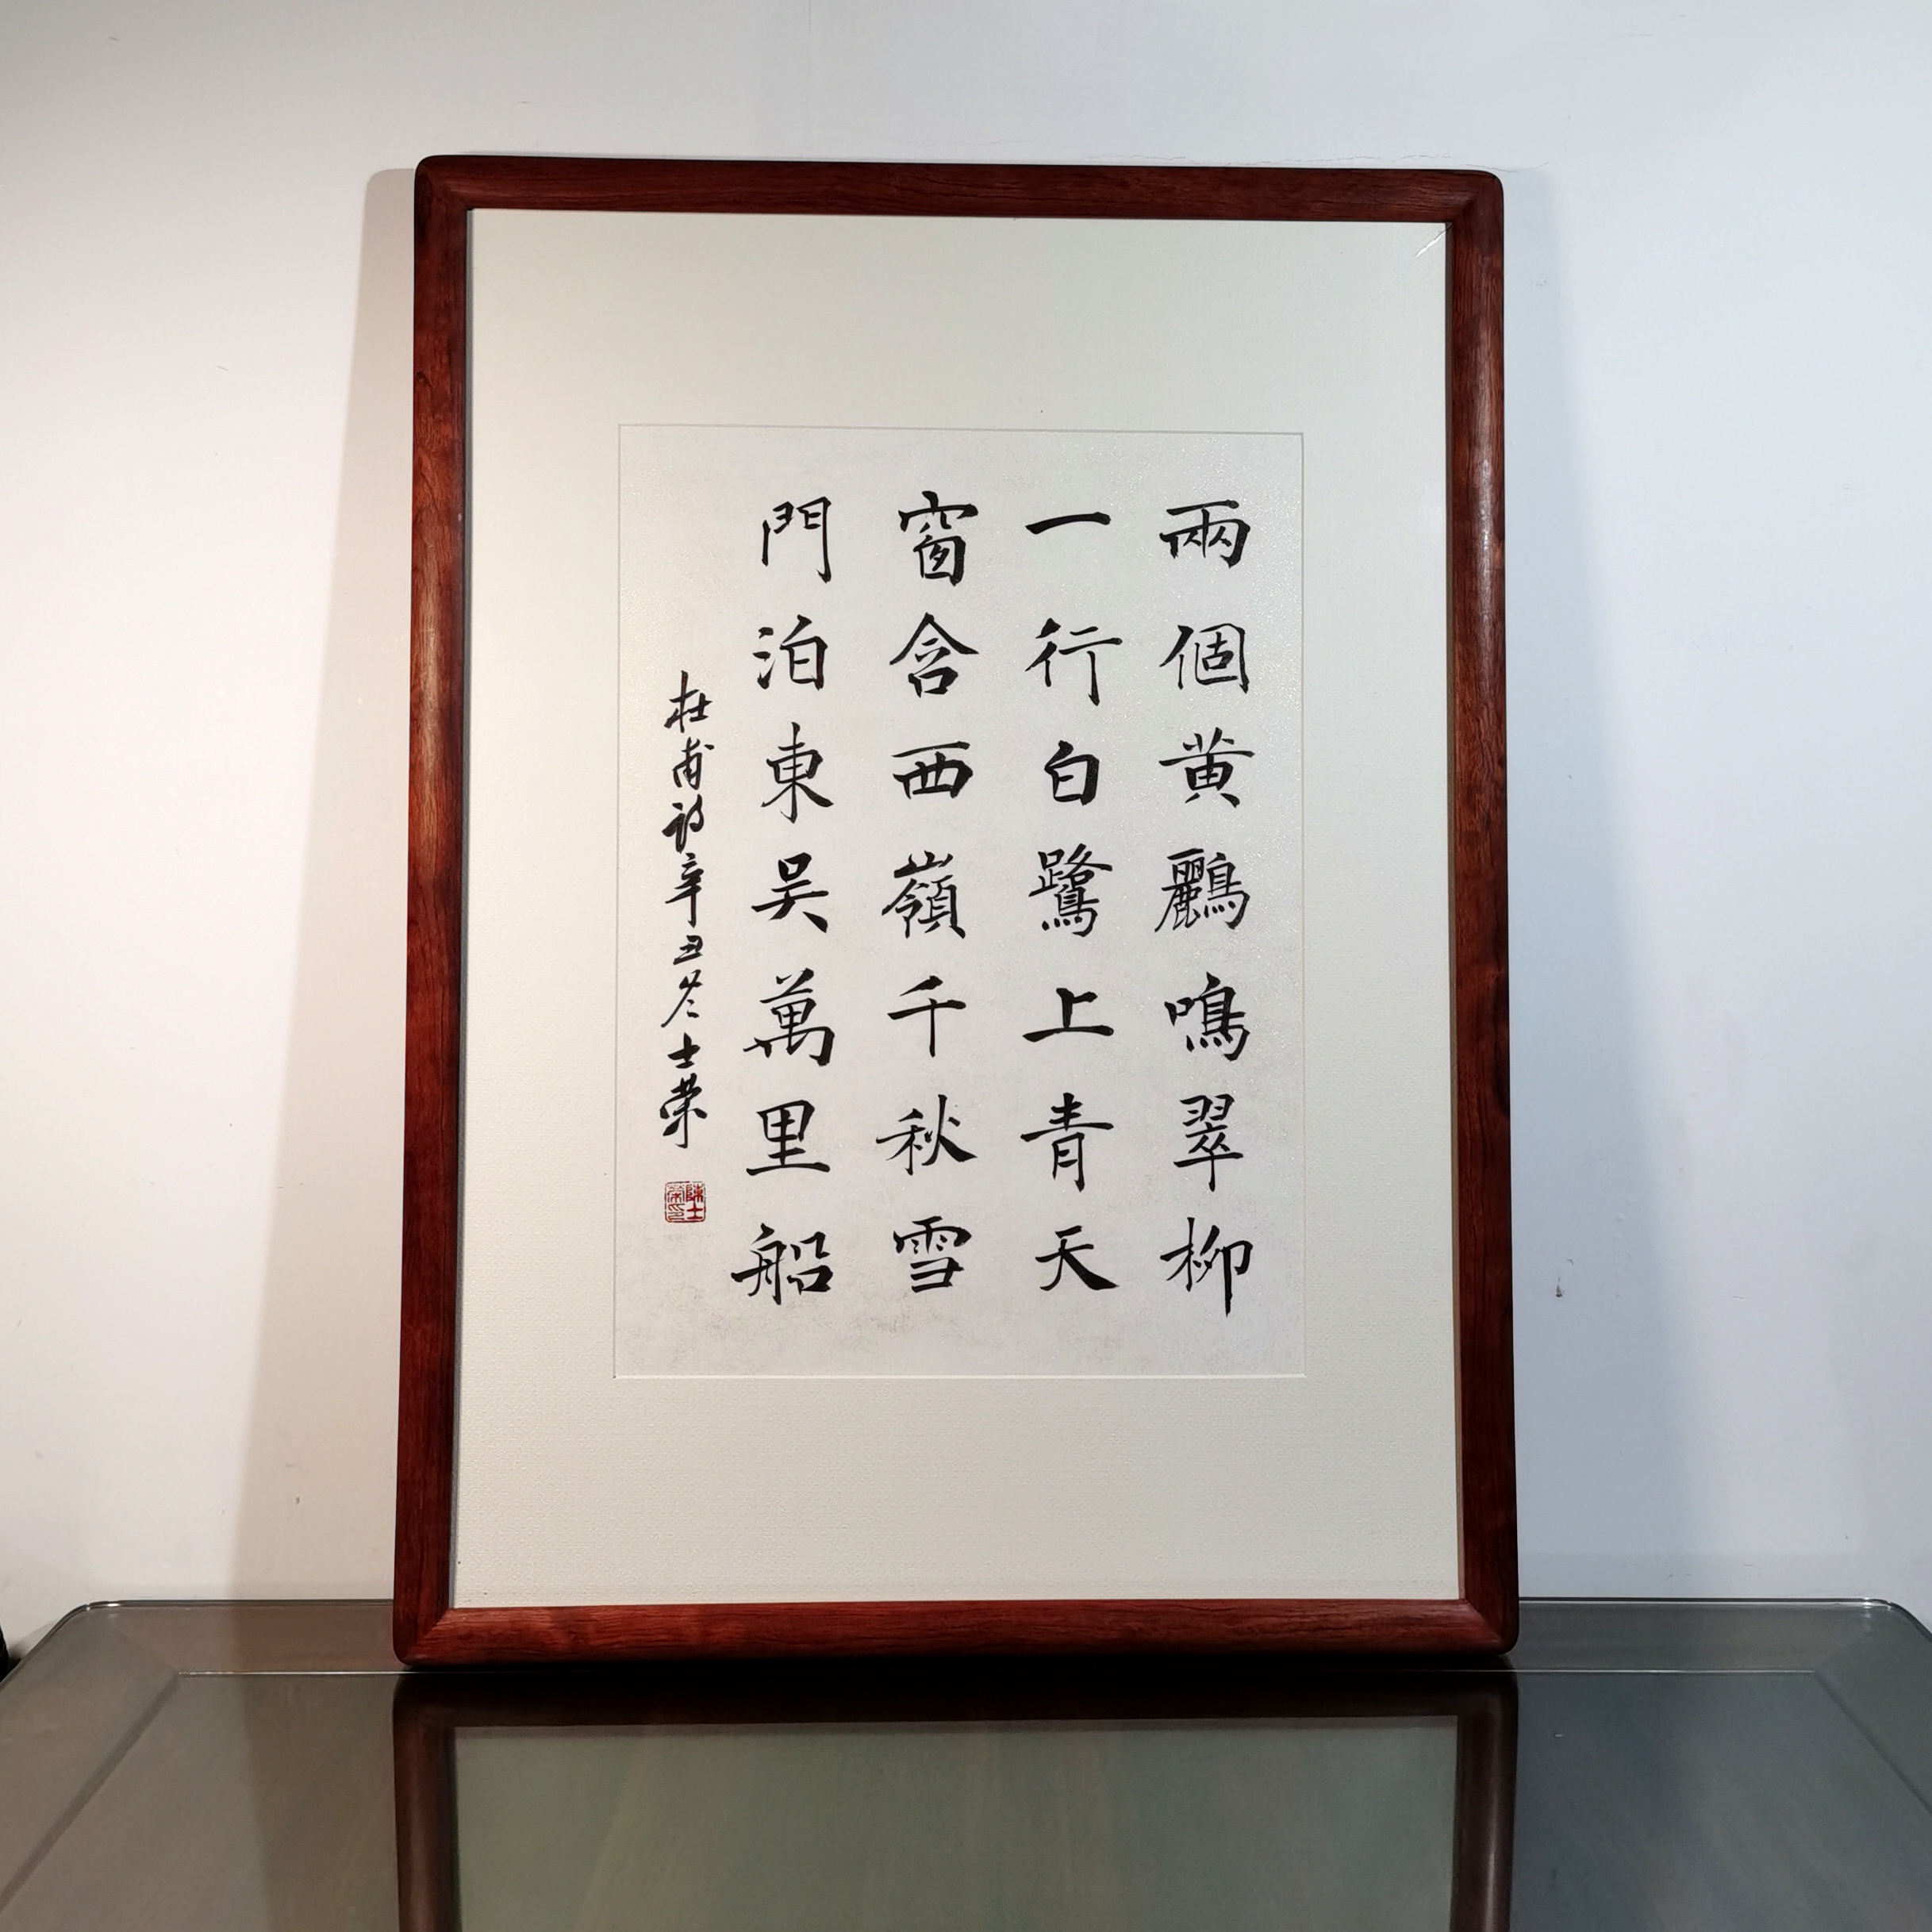 兩個黄鸝鳴翠柳
一行白鷺上青天
窗含西嶺千秋雪
門泊東吴萬里船
杜甫詩辛丑冬士榮
陳士榮印